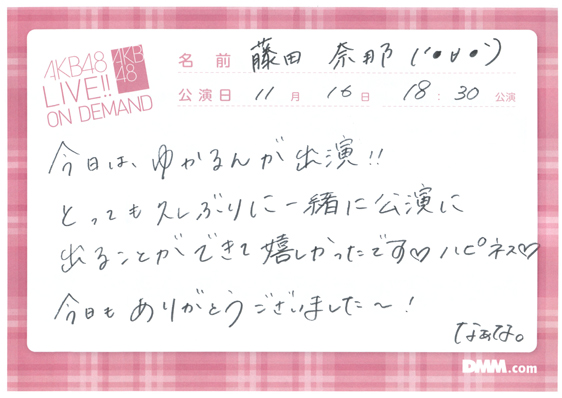 AKB48
LIVE!!
ON DEMAND
AKB
48
名 前 藤田 奈那 (´•ω•`)
公演日 11月 16日 18:30 公演
今日は、ゆかるんが出演!!
とっても久しぶりに一緒に公演に
出ることができて嬉しかったです♡ハピネス♡
今日もありがとうございました〜!
なぁな。
DMM.com